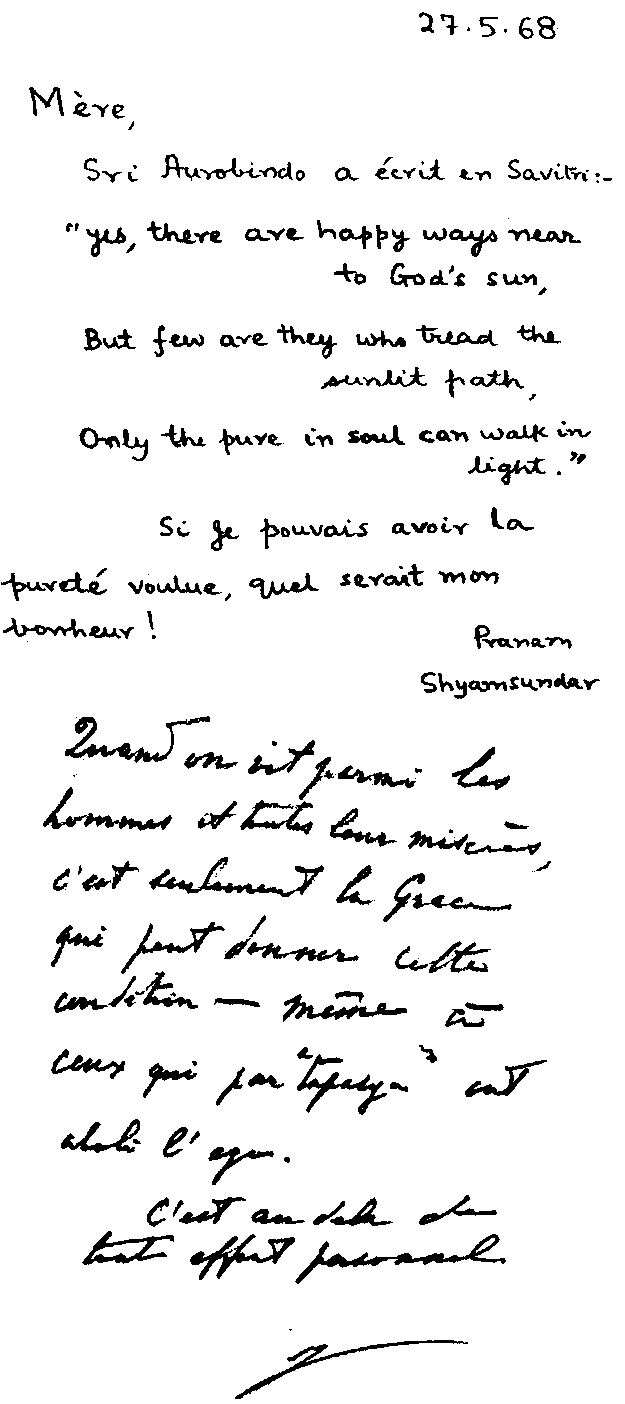 27.5.68
Mère,
Sri Aurobindo a écrit en Savitri:-
"yes, there are happy ways near
to God's sun,
But few are they who tread the
sunlit path,
Only the pure in soul can walk in
light."
Si je pouvais avoir la
pureté voulue, quel serait mon
bonheur!
Pranam
Shyamsundar
Quand on vit parmi les
hommes et toutes leur misères,
c'est seulement la Grace
qui peut donner cette
condition — même à
ceux qui par "tapasya" ont
aboli l'ego.
C'est au delà de
tout effort personnel.